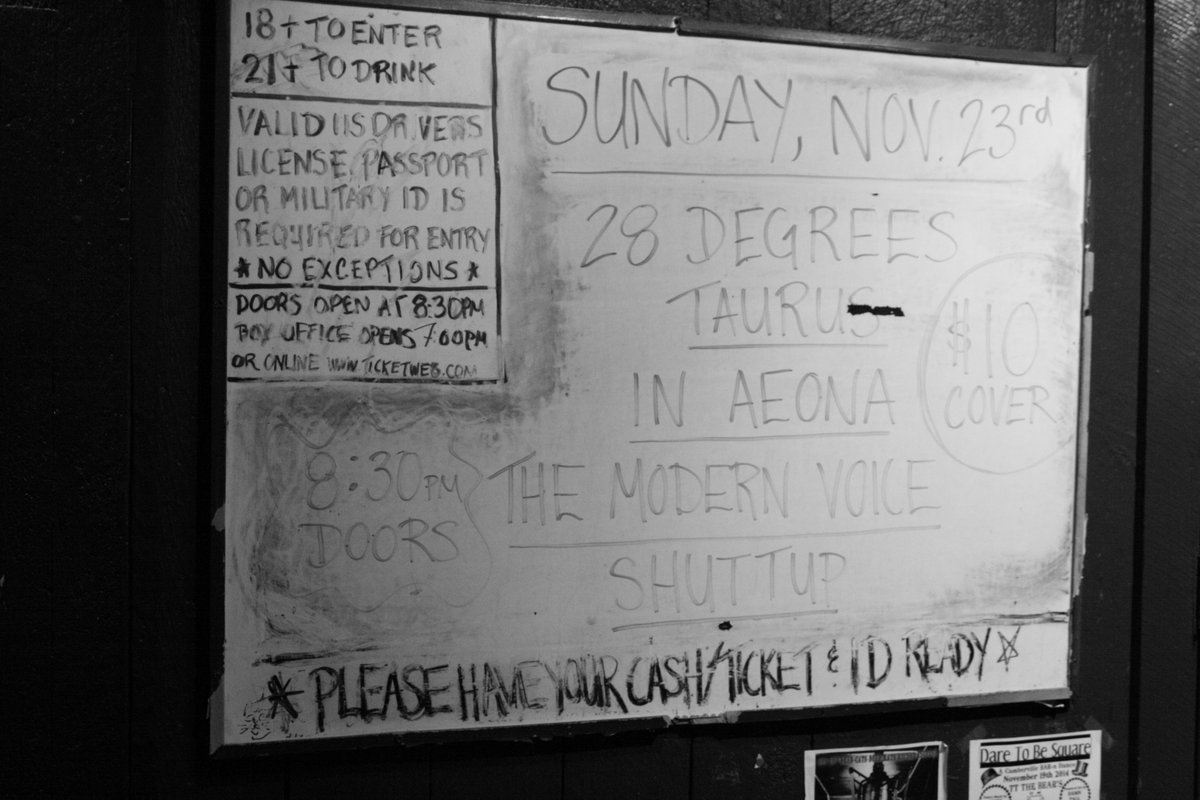 18+ TO ENTER
21+ TO DRINK
VALID US DRIVERS
LICENSE, PASSPORT
OR MILITARY ID IS
REQUIRED FOR ENTRY
* NO EXCEPTIONS *
DOORS OPEN AT 8:30PM
BOX OFFICE OPENS 7:00PM
OR ONLINE WWW.TICKETWEB.COM
SUNDAY, NOV. 23rd
28 DEGREES
TAURUS
IN AEONA
THE MODERN VOICE
SHUTTUP
$10
COVER
8:30PM
DOORS
* PLEASE HAVE YOUR CASH/TICKET & ID READY ☆
Dare To Be Square
A Camberville BAR-n Dance
November 19th 2014
TT THE BEAR'S